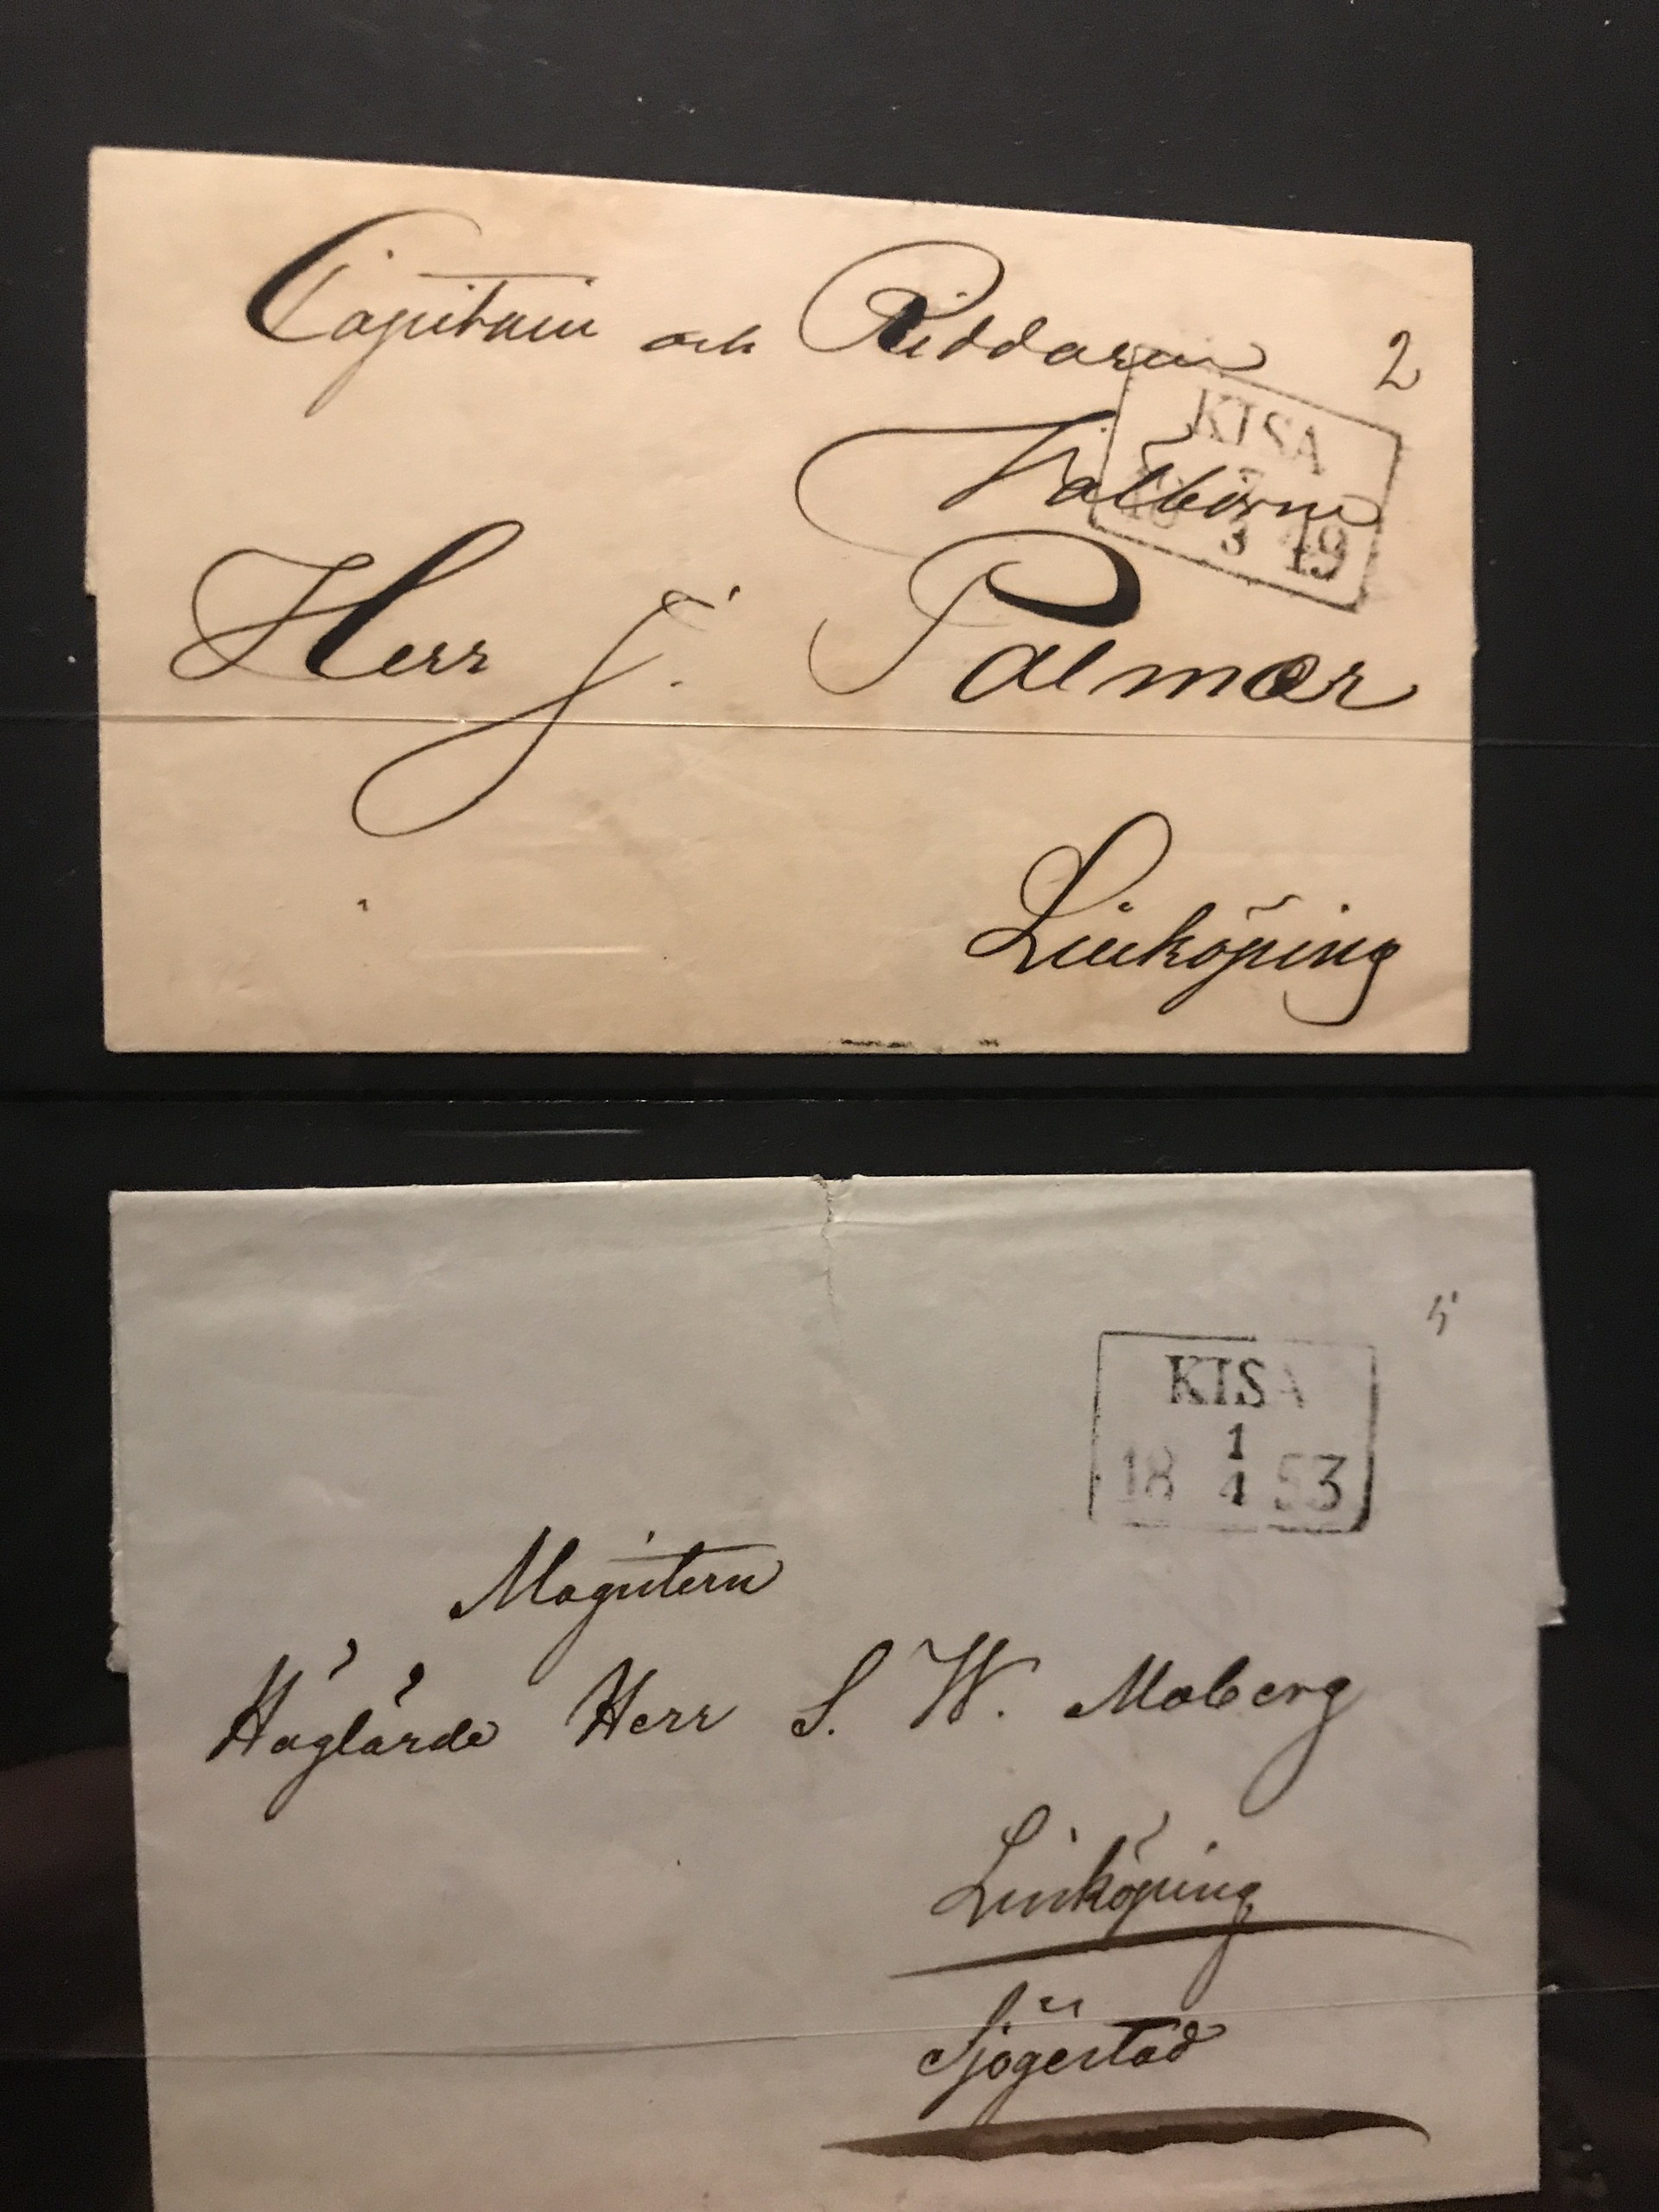 Capitain och Riddaren
2
KISA
Välborne
3 49
Herr J. Palmær
Linköping
5
KISA
1
18 4 53
Magistern
Höglärde Herr S. W. Moberg
Linköping
Sjögestad